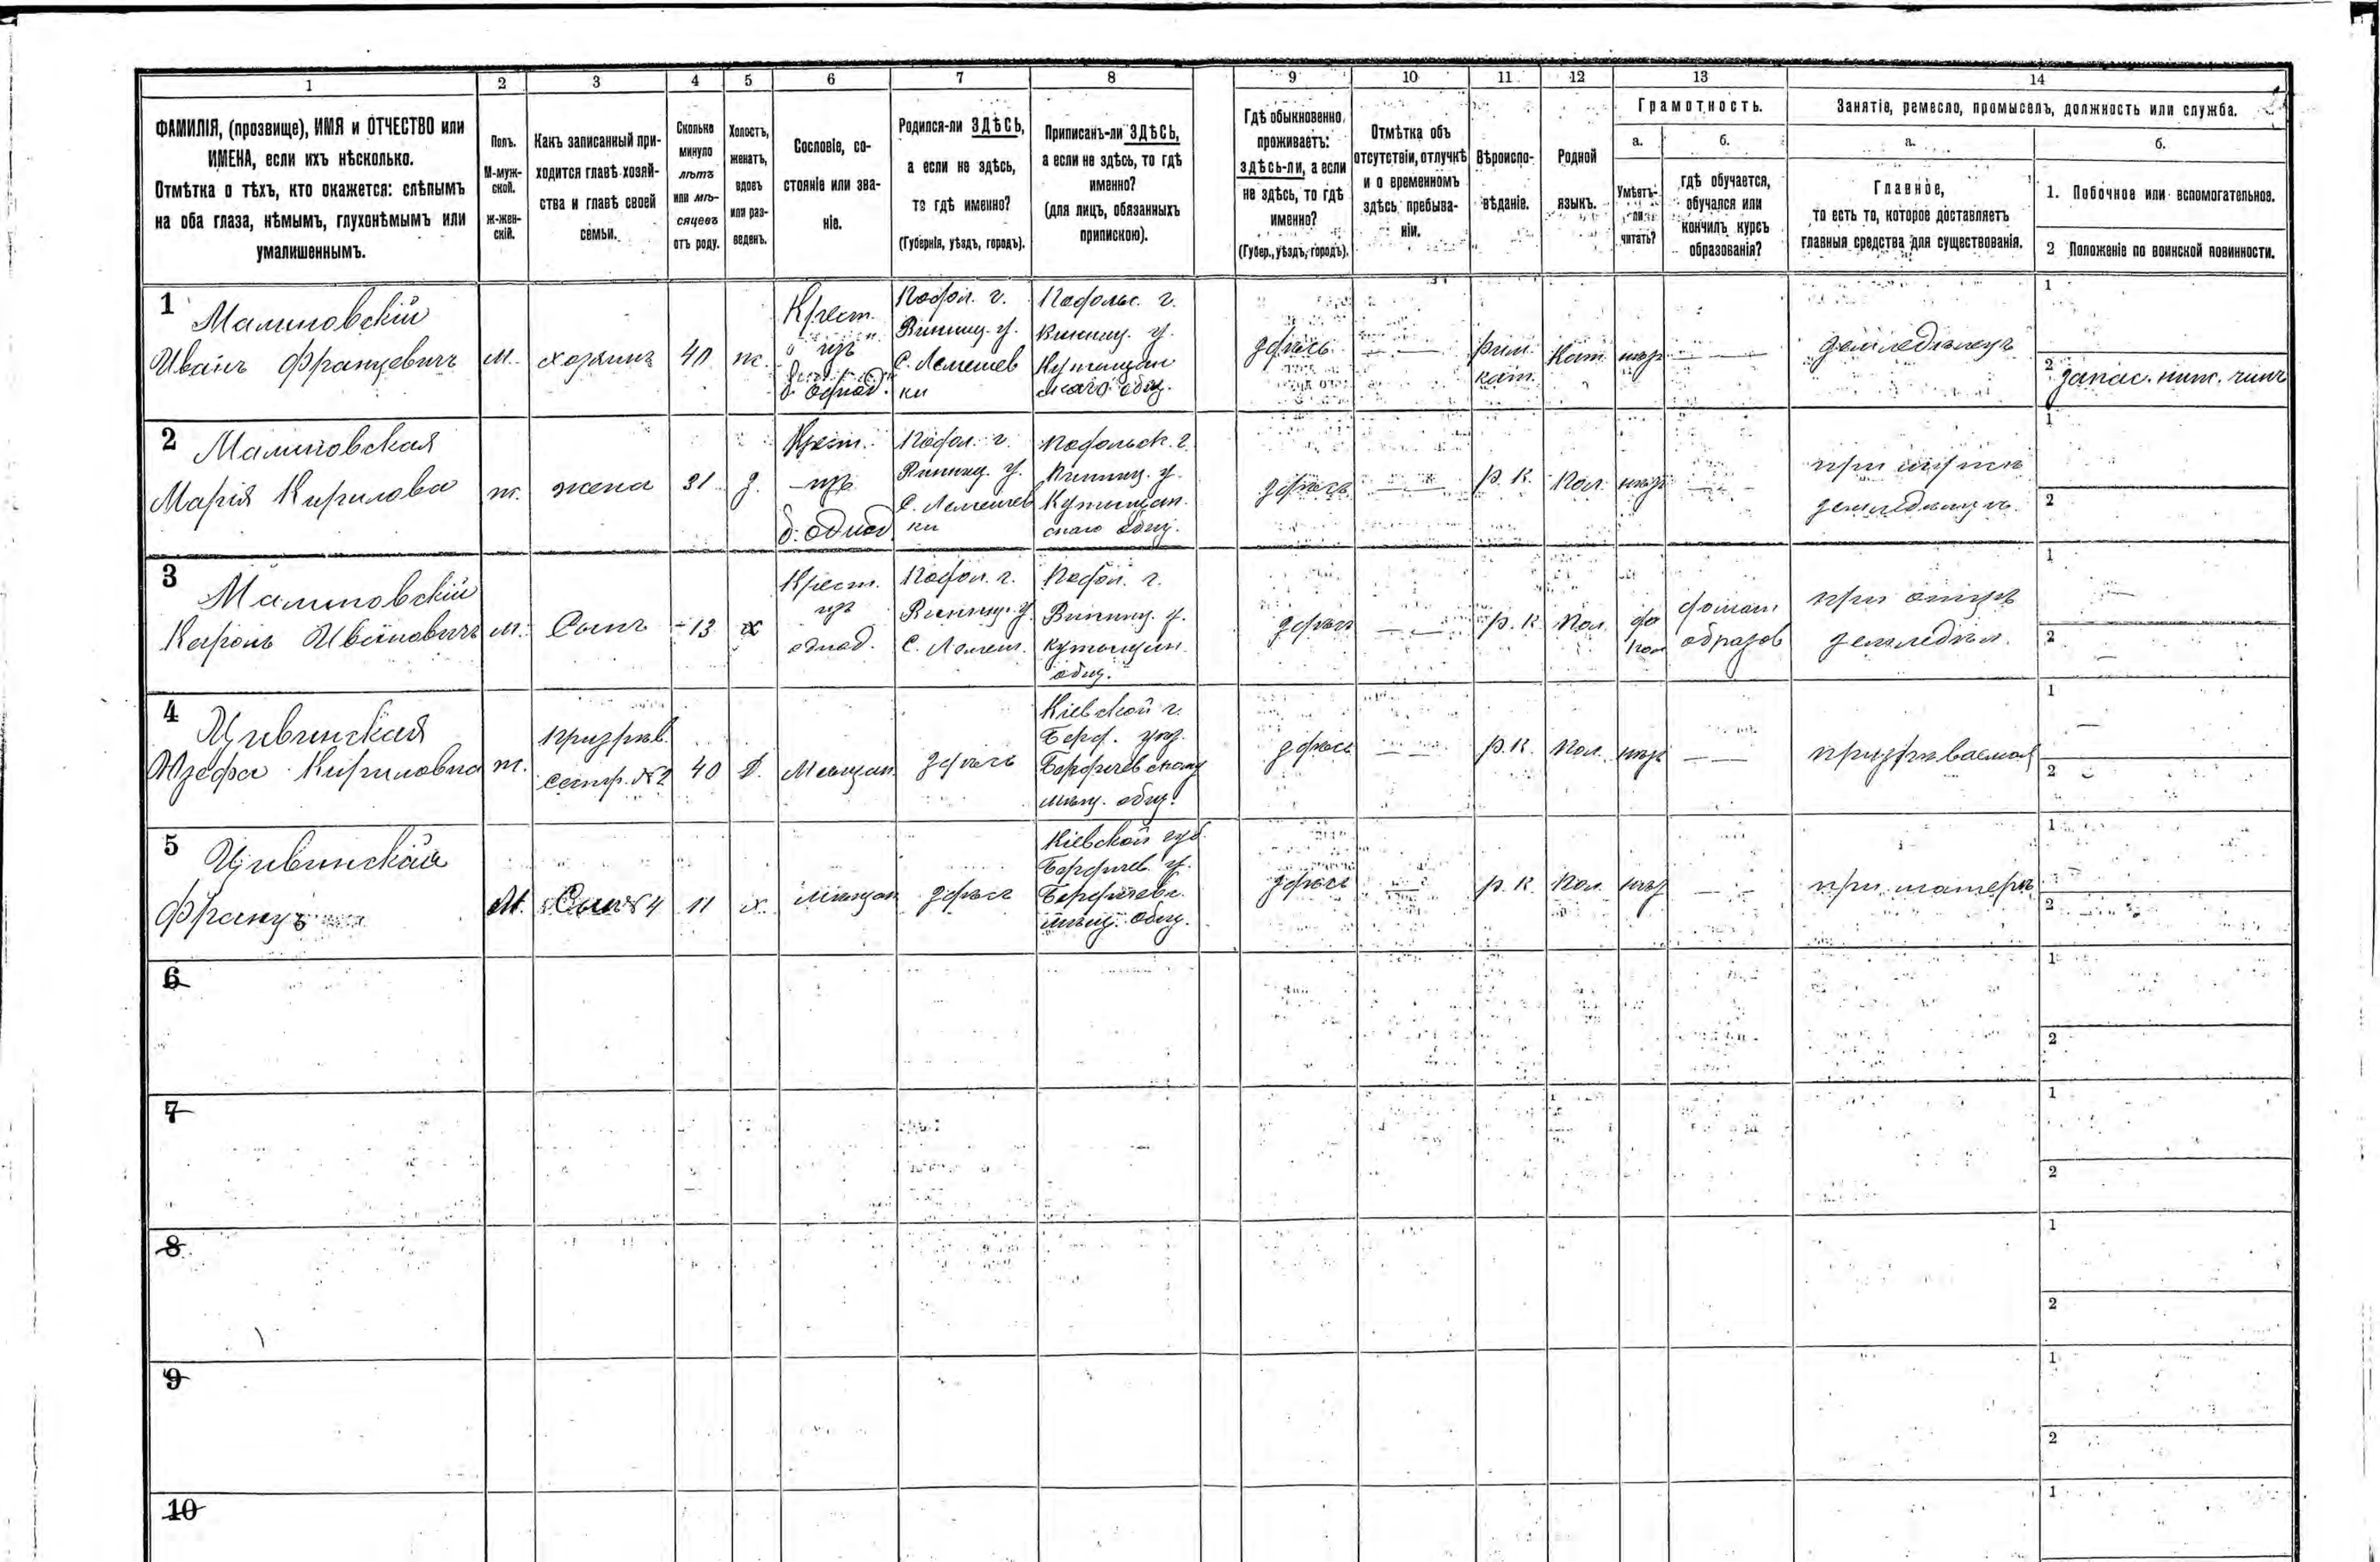 1 2 3 4 5 6 7 8 9 10 11 12 13 14
ФАМИЛІЯ, (прозвище), ИМЯ и ОТЧЕСТВО или
ИМЕНА, если ихъ нѣсколько.
Отмѣтка о тѣхъ, кто окажется: слѣпымъ
на оба глаза, нѣмымъ, глухонѣмымъ или
умалишеннымъ.
Полъ.
М-муж-
ской.
ж-жен-
скій.
Какъ записанный при-
ходится главѣ хозяй-
ства и главѣ своей
семьи.
Сколько
минуло
лѣтъ
или мѣ-
сяцевъ
отъ роду.
Холостъ,
женатъ,
вдовъ
или раз-
веденъ.
Сословіе, со-
стояніе или зва-
ніе.
Родился-ли ЗДѢСЬ,
а если не здѣсь,
то гдѣ именно?
(Губернія, уѣздъ, городъ).
Приписанъ-ли ЗДѢСЬ,
а если не здѣсь, то гдѣ
именно?
(для лицъ, обязанныхъ
припискою).
Гдѣ обыкновенно
проживаетъ:
здѣсь-ли, а если
не здѣсь, то гдѣ
именно?
(Губер., уѣздъ, городъ).
Отмѣтка объ
отсутствіи, отлучкѣ
и о временномъ
здѣсь пребыва-
ніи.
Вѣроиспо-
вѣданіе.
Родной
языкъ.
Грамотность.
а.
Умѣетъ-
ли
читать?
б.
гдѣ обучается,
обучался или
кончилъ курсъ
образованія?
Занятіе, ремесло, промыселъ, должность или служба.
а.
Главное,
то есть то, которое доставляетъ
главныя средства для существованія.
б.
1. Побочное или вспомогательное.
2 Положеніе по воинской повинности.
1
Малиновскій
Иванъ Францевичъ
м.
хозяинъ
40
ж.
Крест.
изъ
б. однод.
Подол. г.
Винниц. у.
С. Лемешев
ки
Подольс. г.
Винниц. у.
Кутищан
скаго общ.
здѣсь
— —
Рим.
кат.
нѣт
— —
земледѣлецъ
1
2
запас. ниж. чинъ
2
Малиновская
Марія Кирилова
ж.
жена
31
з.
Крест.
изъ
б. однод
Подол. г.
Винниц. у.
С. Лемешев
ки
Подольск. г.
Винниц. у.
Кутищан.
скаго общ.
здѣсь
— —
р. к.
Пол.
нѣт
— —
при мужѣ
1
2
3
Малиновскій
Кароль Ивановичъ
м.
Сынъ
13
х
Крест.
изъ
однод.
Подол. г.
Винниц. у.
С. Лемеш.
Подол. г.
Винниц. у.
Кутищан.
общ.
здѣсь
— —
р. к.
Пол.
да
пол
домаш
образов
при отцѣ
земледѣл.
1
2
4
Цивинская
Юзефа Кириловна
ж.
призрѣв.
сестр. №2
40
д.
Мѣщан.
здѣсь
Кіевской г.
Берд. уѣз.
Бердичевскому
мѣщ. общ.
здѣсь
— —
р. к.
Пол.
нѣт
— —
призрѣваемая
1
2
5
Цивинскій
Францъ
М.
Сынъ №4
11
х.
мѣщан
здѣсь
Кіевской губ.
Бердичев. у.
Бердичевс.
мѣщ. общ.
здѣсь
— —
р. к.
Пол.
нѣт
— —
при матери
1
2
6
1
2
7
1
2
8
1
2
9
1
2
10
1